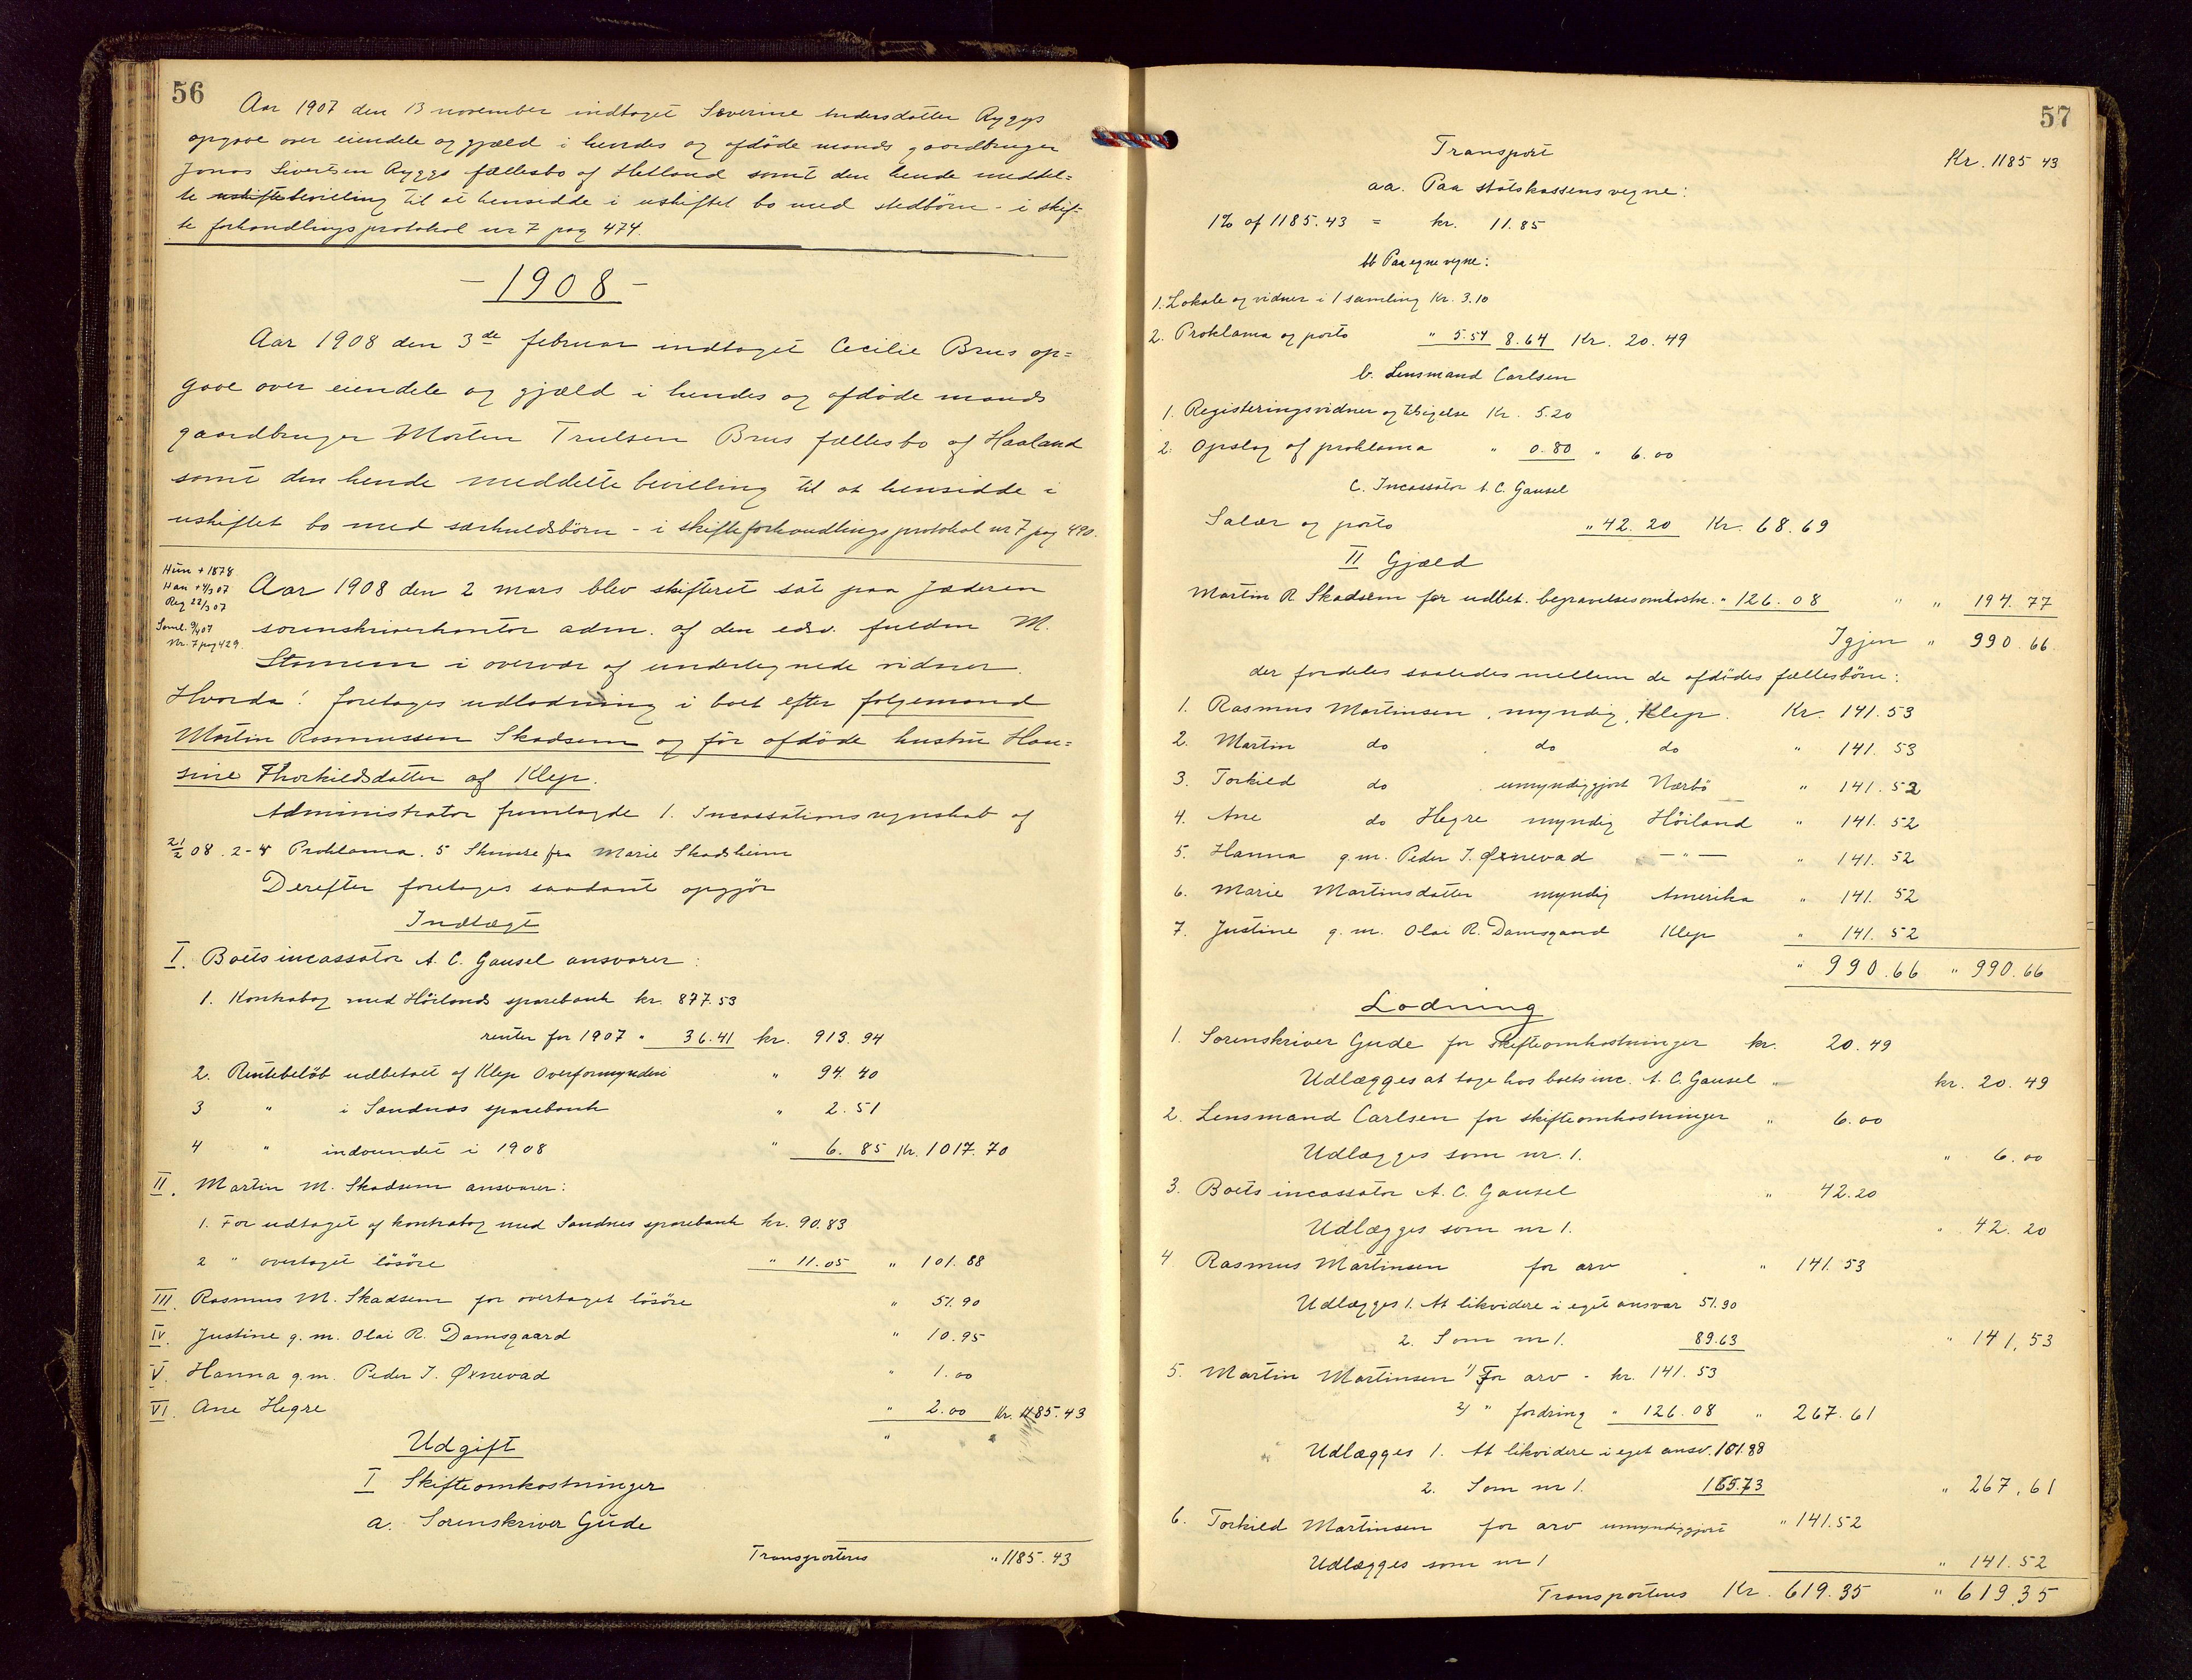 56
Aar 1907 den 13 november indtaget Severine Andersdatter Rygge
opgave over eiendele og gjæld i hendes og afdøde mands gaardbruger
Jonas Sivertsen Rygge fællesbo af Hetland samt den hende meddel=
te uskiftebevilling til at hensidde i uskiftet bo med stedbörn - i skif-
te forhandlingsprotokol nr 7 pag 474.
- 1908 -
Aar 1908 den 3de februar indtaget Cecilie Brus op=
gave over eiendele og gjæld i hendes og afdøde mands
gaardbruger Morten Trulsen Brus fællesbo af Haaland
samt den hende meddelte bevilling til at hensidde i
uskiftet bo med særkuldsbörn - i skifteforhandlingsprotokol nr 7 pag 490.
Hun + 1878
Han + 4/3 07
Reg 22/3 07
Saml. 9/4 07
Nr. 7 pag 429.
Aar 1908 den 2 mars blev skifteret sat paa Jæderen
sorenskriverkontor adm. af den edsv. fuldm M.
Stornem i overvær af undertegnede vidner.
Hvorda! foretages udlodning i boet efter følgemand
Martin Rasmussen Skadsem og før afdöde hustru Han=
sine Thorkildsdatter af Klep.
Administrator fremlagde 1. Incassationsregnskab af
21/2 08. 2-4 Proklama. 5 Skrivere fra Marie Skadsheim
Derefter foretages saadant opgjör
Indtægt
I. Boets incassator A. C. Gausel ansvarer:
1. Kontrabog med Höilands sparebank kr. 877.53
renter for 1907 " 36.41 kr. 913.94
2. Rentebeløb udbetalt af Klep Overformynderi " 94.40
3 " i Sandnæs sparebank " 2.51
4 " indvundet i 1908 " 6.85 Kr. 1017.70
II. Martin M. Skadsem ansvarer:
1. For udtaget af kontrabog med Sandnes sparebank kr. 90.83
2 " overtaget lösöre " 11.05 " 101.88
III. Rasmus M. Skadsem for overtaget lösöre " 51.90
IV. Justine g. m. Olai R. Damsgaard " 10.95
V. Hanna g.m. Peder I. Ørnevad " 1.00
VI. Ane Hegre " 2.00 Kr. 1185.43
Udgift
I Skifteomkostninger
a. Sorenskriver Gude
Transporteres " 1185.43
57
Transport Kr. 1185 43
aa. Paa statskassens vegne:
1% af 1185.43 = kr. 11.85
bb Paa egne vegne:
1. Lokale og vidner i 1 samling Kr. 3.10
2. Proklama og porto " 5.54 8.64 Kr. 20.49
b. Lensmand Carlsen
1. Registeringsvidner og tilsigelse Kr. 5.20
2. Opslag af proklama " 0.80 " 6.00
c. Incassator A. C. Gausel
Salær og porto " 42.20 Kr. 68.69
II Gjæld
Martin R. Skadsem for udbet. begravelsesomkostn. " 126.08 " " 194.77
Igjen " 990.66
der fordeles saaledes mellem de afdödes fællesbörn:
1. Rasmus Martinsen, myndig, Klep. Kr. 141.53
2. Martin do do do " 141.53
3. Torkild do umyndiggjort Nærbö " 141.52
4. Ane do Hegre myndig Höiland " 141.52
5. Hanna g.m. Peder I. Ørnevad - " - " 141.52
6. Marie Martinsdatter myndig Amerika " 141.52
7. Justine g. m. Olai R. Damsgaard Klep " 141.52
" 990.66 " 990.66
Lodning
1. Sorenskriver Gude for skifteomkostninger kr. 20.49
Udlægges at tage hos boets inc. A. C. Gausel " kr. 20.49
2. Lensmand Carlsen for skifteomkostninger " 6.00
Udlægges som nr. 1. " 6.00
3. Boets incassator A. C. Gausel " 42.20
Udlægges som nr 1. " 42.20
4 Rasmus Martinsen for arv " 141.53
Udlægges 1. At likvidere i eget ansvar 51.90
2. Som nr 1. 89.63 " 141,53
5. Martin Martinsen 1) For arv - kr. 141.53
2) " fordring " 126.08 " 267.61
Udlægges 1. At likvidere i eget ansv. 101.88
2. Som nr 1. 165.73 " 267,61
6. Torkild Martinsen for arv umyndiggjort " 141.52
Udlægges som nr 1 " 141.52
Transporteres Kr. 619.35 " 619.35